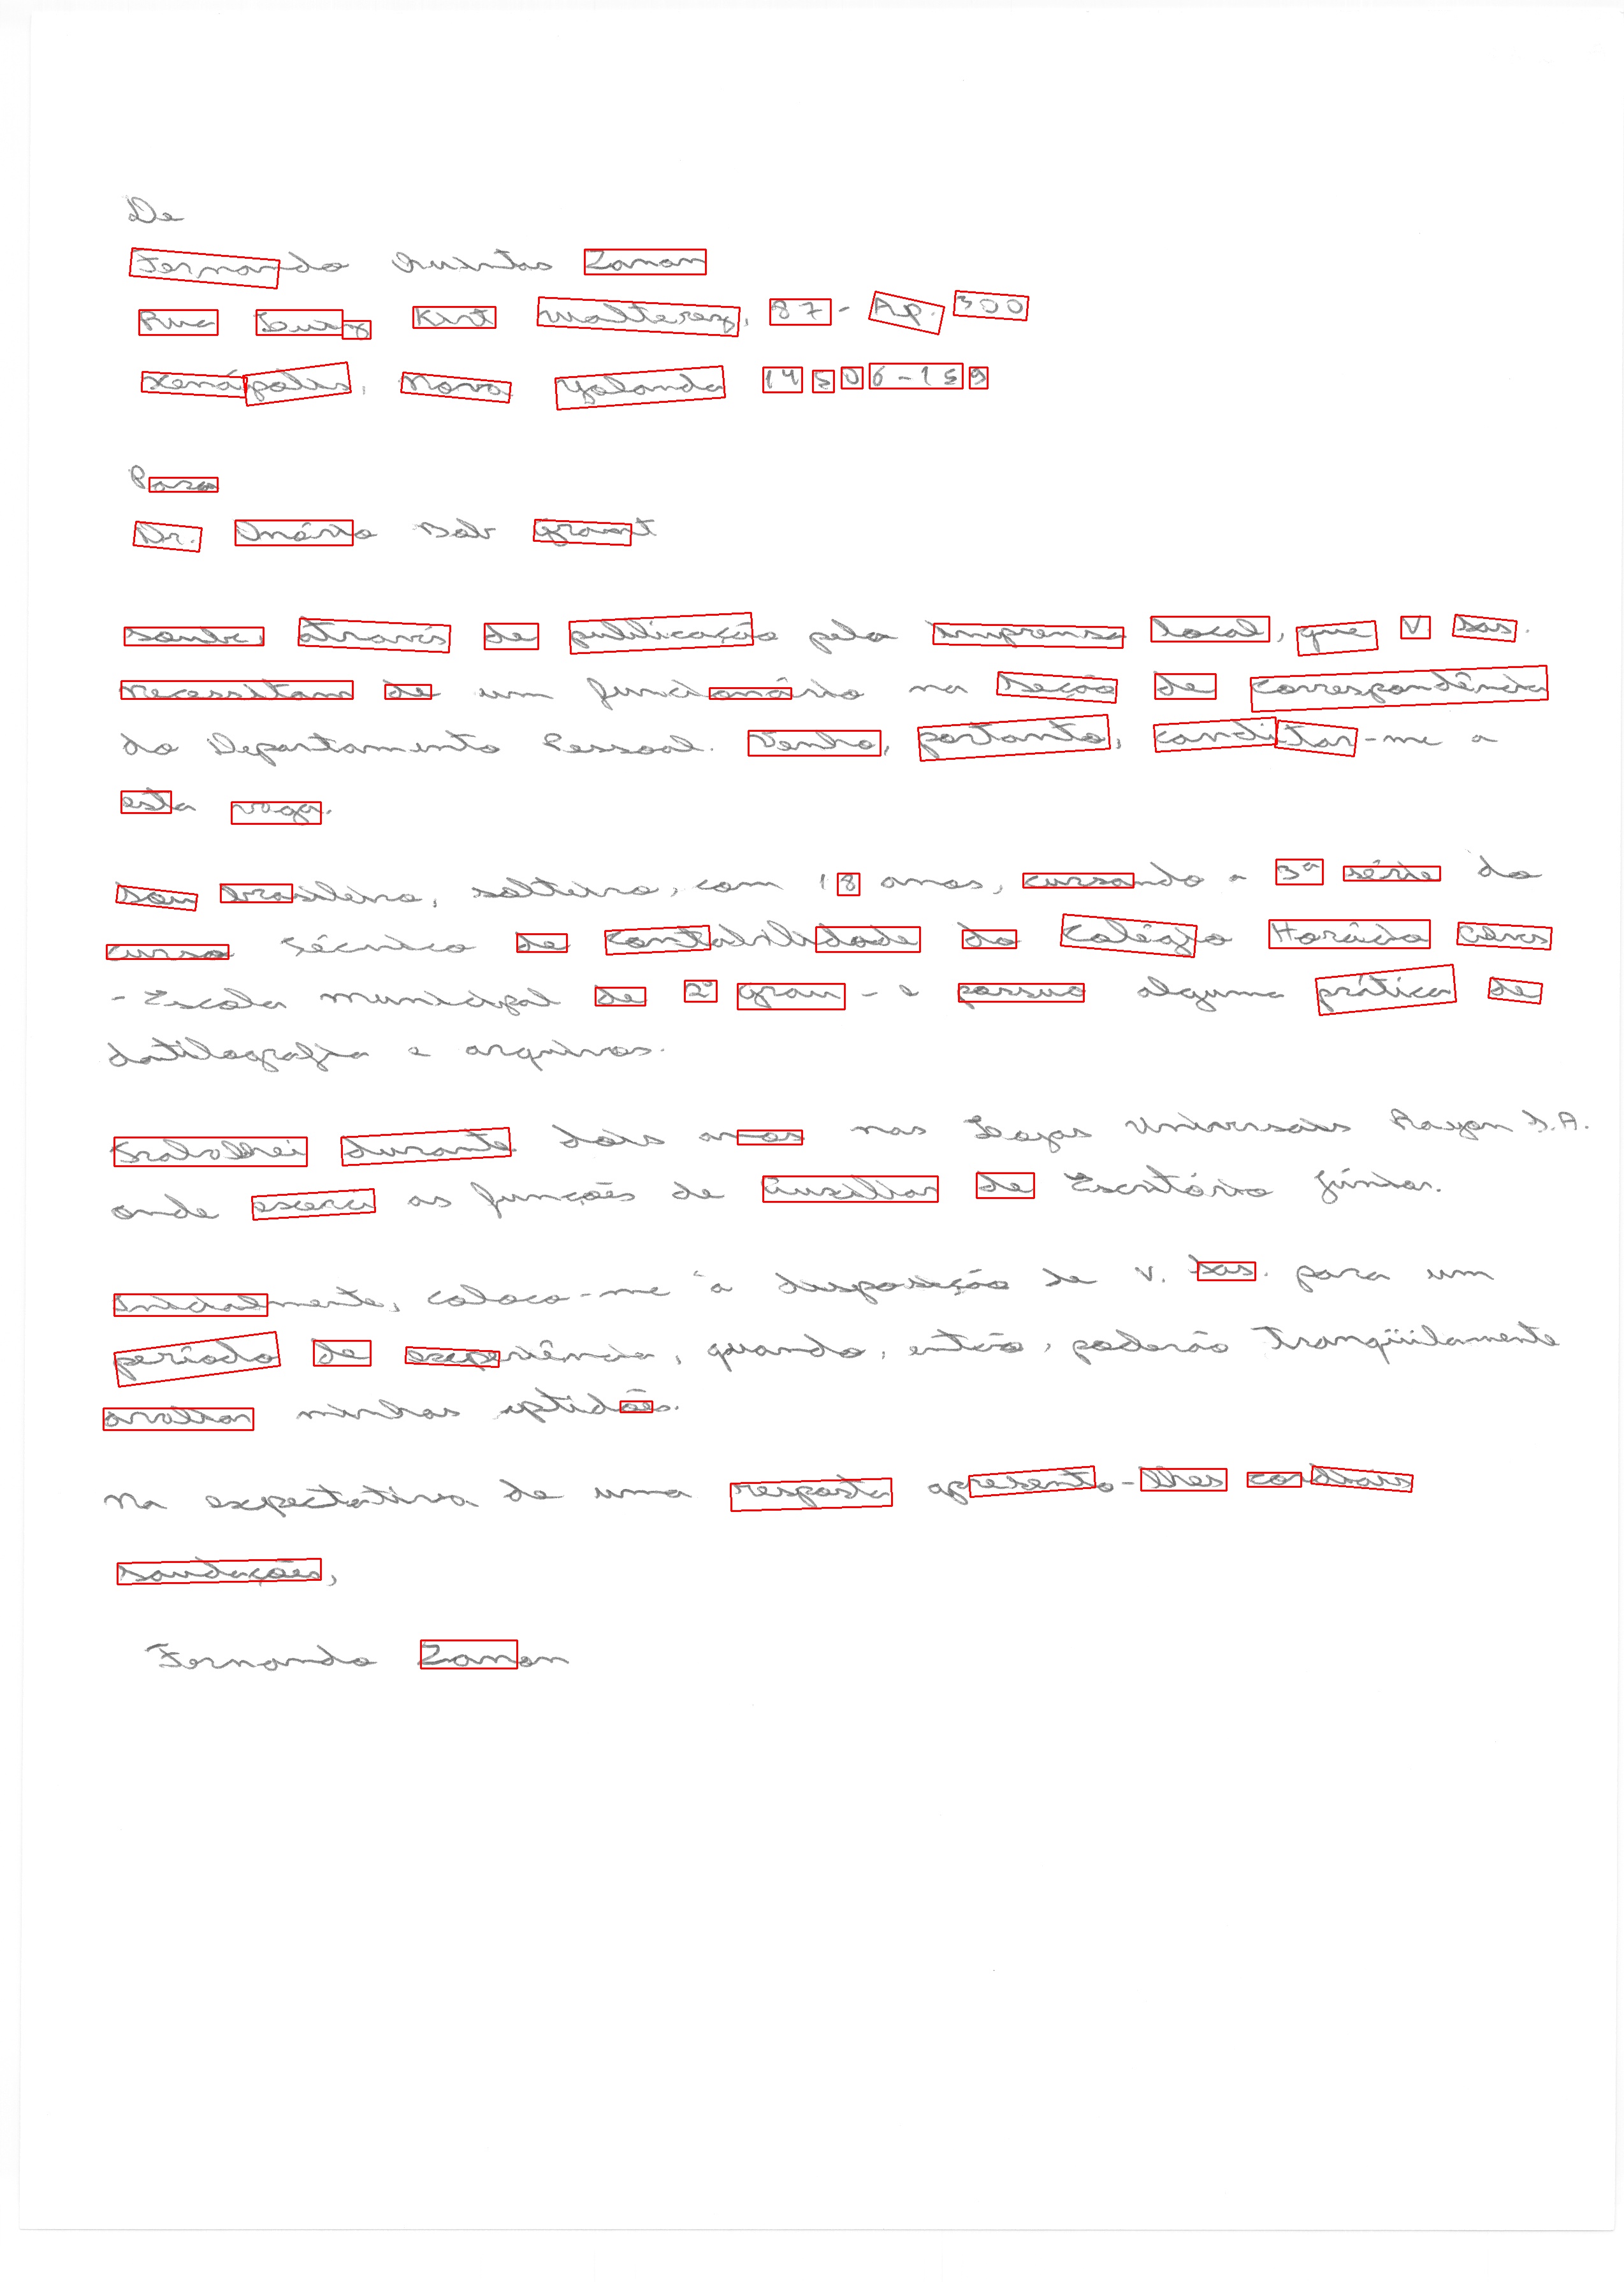 De
Fernando Quintas Zanon
Rua Luiz Kint Walterez, 87 - Ap. 300
Xenápolis, Nova Yolanda 14506-159
Para
Dr. Onário Bob Grant
Soube, através de publicação pela imprensa local, que V Sas.
necessitam de um funcionário na Seção de correspondência
do Departamento Pessoal. Venho, portanto, canditar-me a
esta vaga.
Sou brasileiro, solteiro, com 18 anos, cursando a 3ª série do
curso Técnico de Contabilidade do Colégio Horácio
- Escola municipal de 2º grau - e possuo alguma prática de
datilografia e arquivos.
Trabalhei durante dois anos nas Lojas Universais Rayon S.A.
onde exerci as funções de Auxiliar de Escritório Júnior.
Inicialmente, coloco-me à disposição de V. Sas. para um
período de experiência, quando, então, poderão tranqüilamente
avaliar minhas aptidões.
Na expectativa de uma resposta apresento-lhes cordiais
saudações,
Fernando Zanon